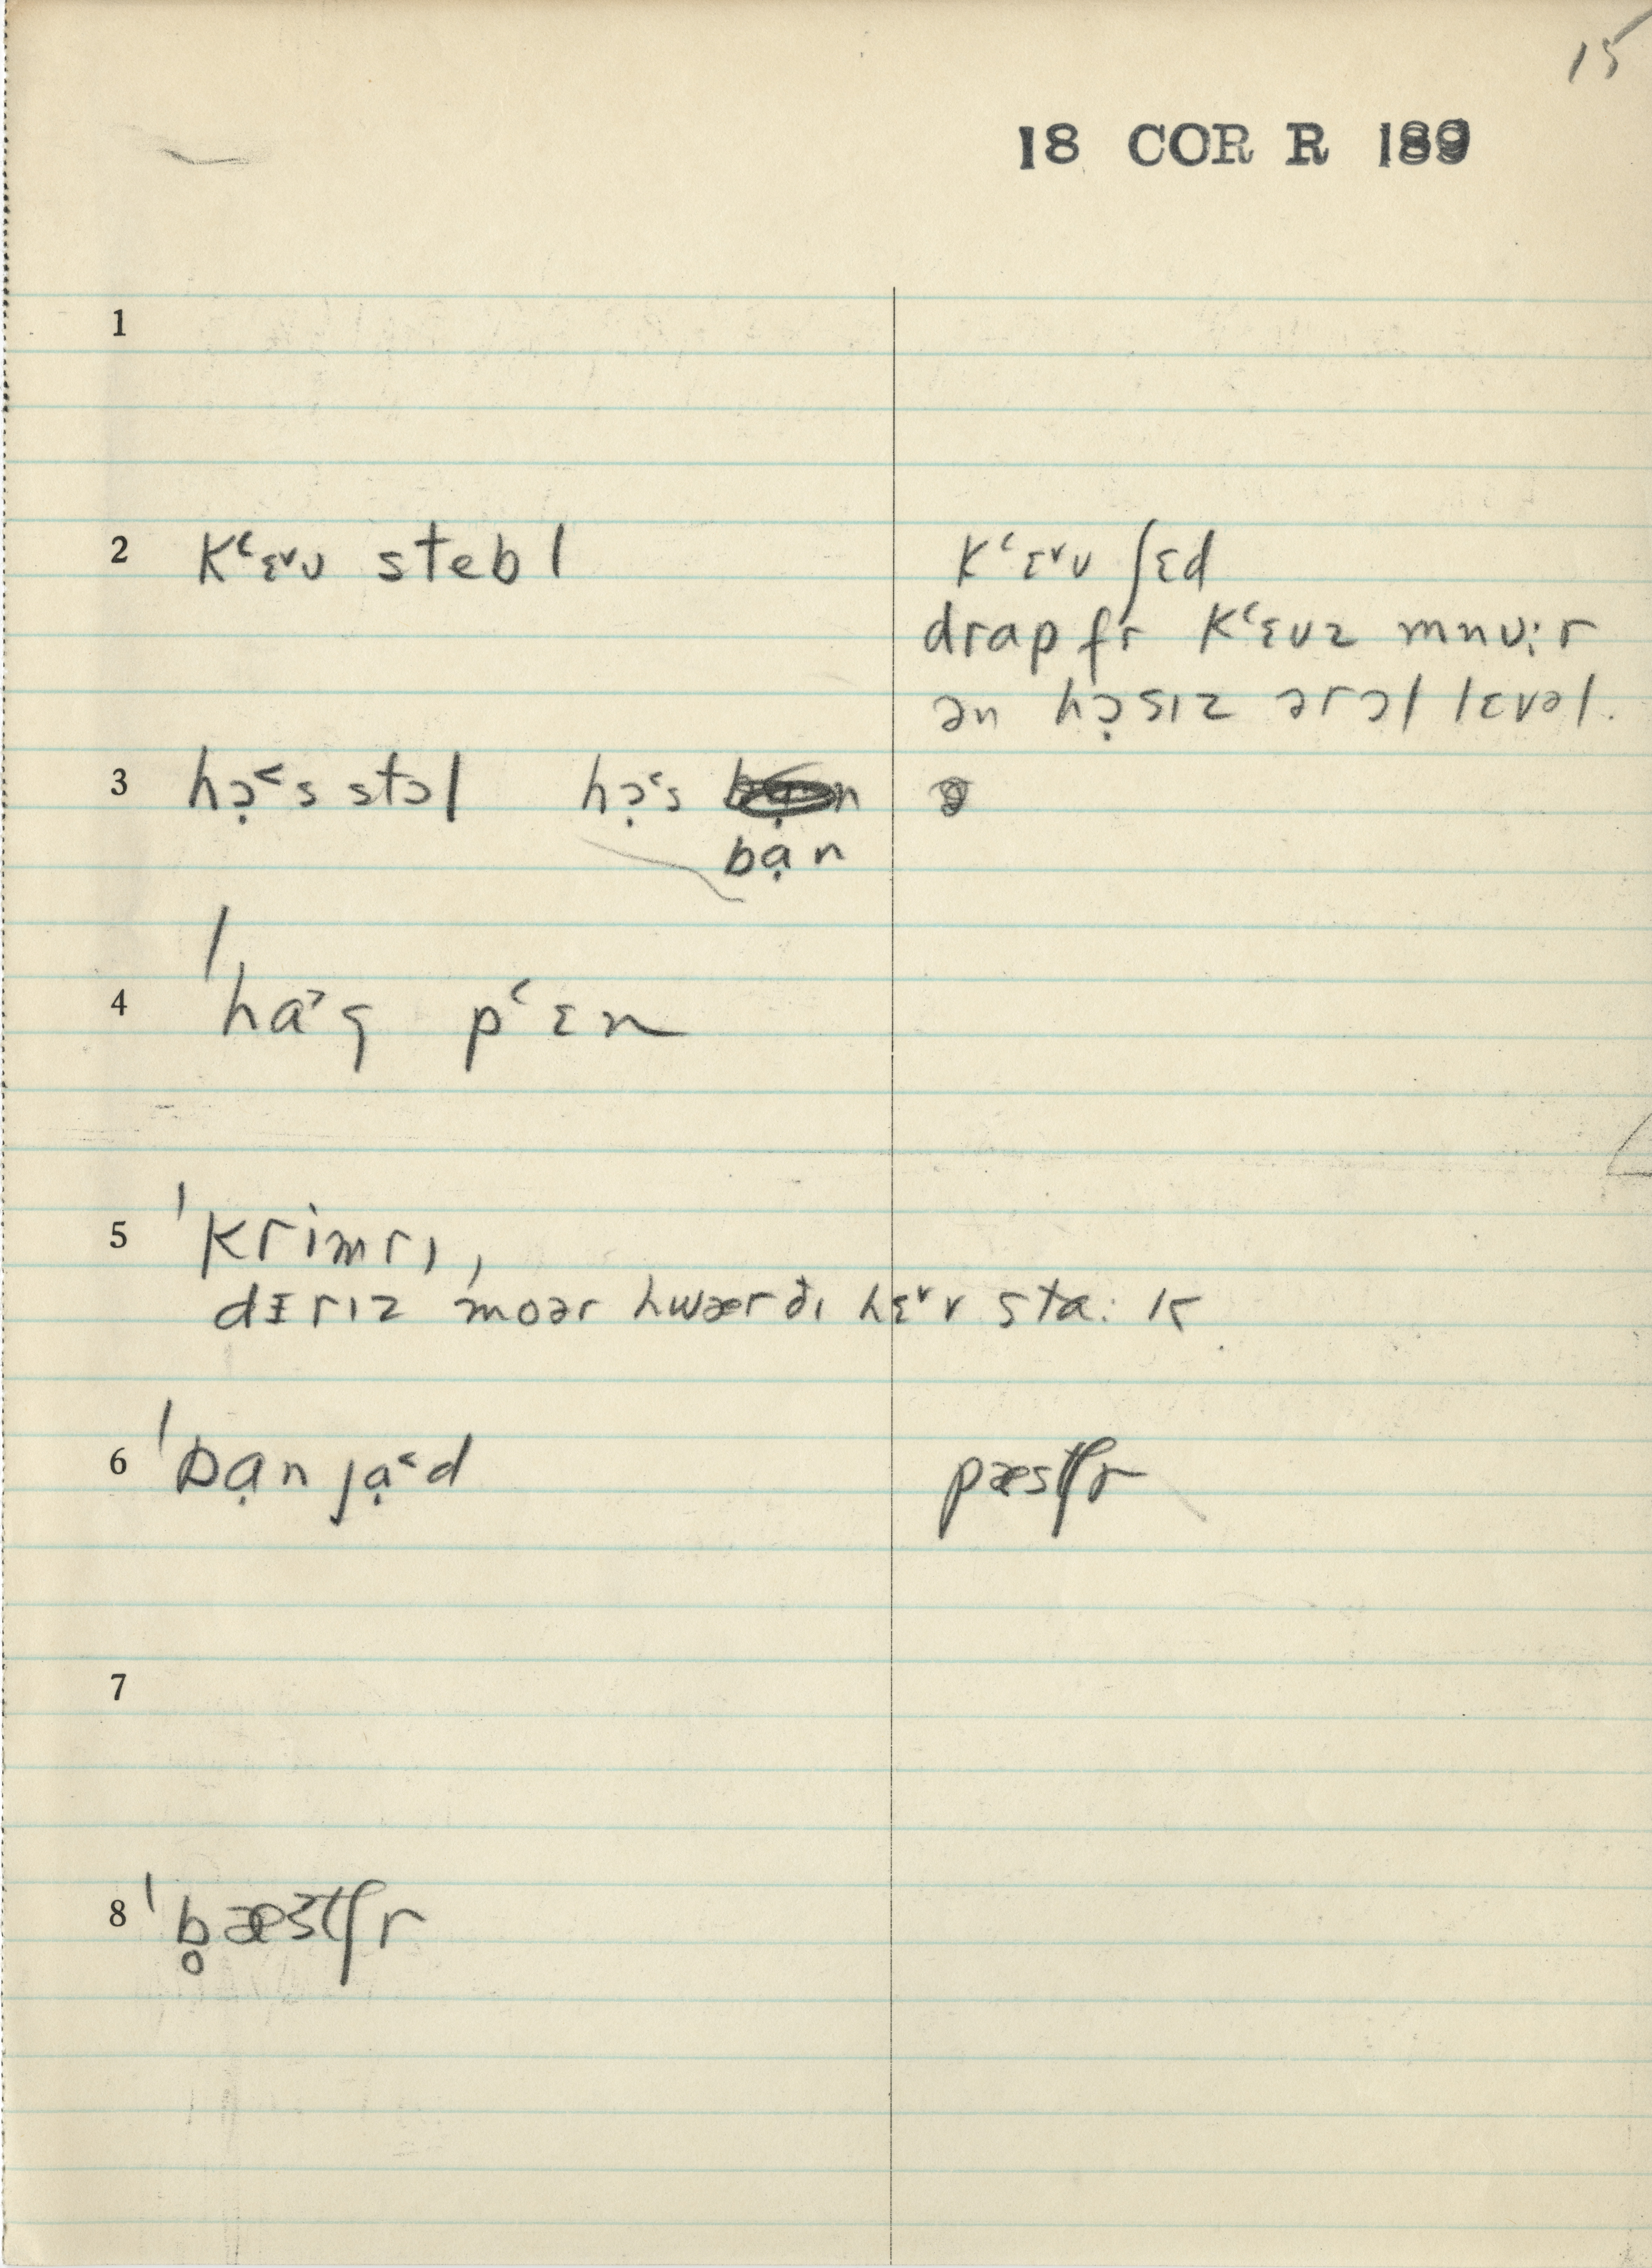 15
18 COR R 189
1
2 kʻɛ˅ʊ stebl
kʻɛ˅ʊ ʃɛd
drap fr kʻɛʊz mnʊːr
ən hɔ̣sɪz ərɔl lɛvəl.
3 hɔ̣˂s stɔl hɔ̣˂s bạn
4 ˈha˃g pʻɛn
5 ˈkrimrɪ,
dɛrɪz moər hwær ðɪ hɛ˅v staːk
6 ˈbạn jạ˂d
pæstʃr
7
8 ˈb̥æstʃr